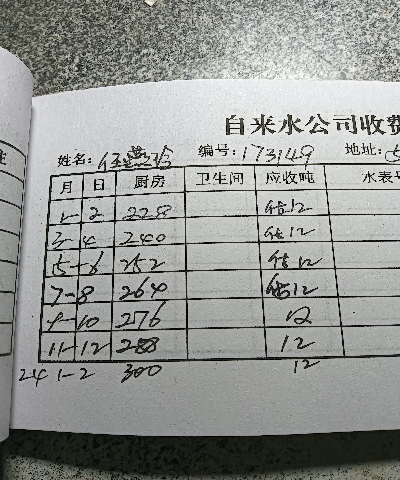 自来水公司收费
姓名: 编号:173149 地址:
月 日 厨房 卫生间 应收吨 水表
1-2 228 估12
3-4 240 估12
5-6 252 估12
7-8 264 估12
9-10 276 12
11-12 288 12
24 1-2 300 12